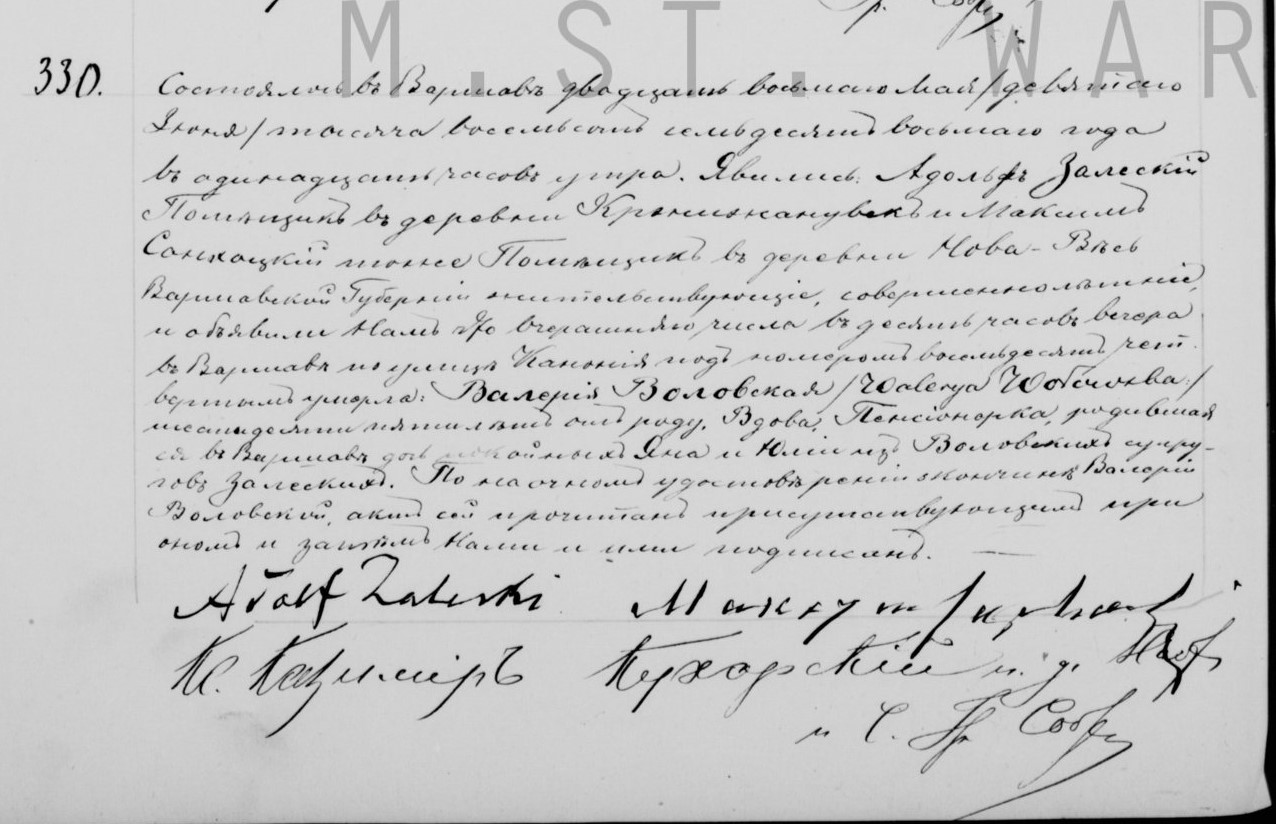 M. ST. WAR
330.
Состоялось въ Варшавѣ двадцать восьмаго Мая /девятаго
Іюня/ тысяча восемьсотъ семьдесятъ восьмаго года
въ одинадцать часовъ утра. Явились: Адольфъ Залескій
Помѣщикъ въ деревни и Максимъ
тоже Помѣщикъ въ деревни Нова-Вѣсь
Варшавской Губерніи жительствующіе, совершеннолѣтніе,
и объявили Намъ что вчерашняго числа въ десять часовъ вечера
въ Варшавѣ по улицѣ Канонія подъ номеромъ восемьдесятъ чет
вертымъ умерла: Валерія Воловская /Walerya Wołowska/
шестьдесяти пяти лѣтъ отъ роду, Вдова, Пенсіонерка, родившая
ся въ Варшавѣ дочь покойныхъ Яна и Юліи изъ Воловскихъ супру-
говъ Залескихъ. По наочномъ удостовѣреніи о кончинѣ Валеріи
Воловской, актъ сей прочитанъ присутствующимъ при
ономъ и затѣмъ Нами и ими подписанъ.
Adolf Zaleski
К. Казимиръ Кухарскій и. д.
и С. Гр.